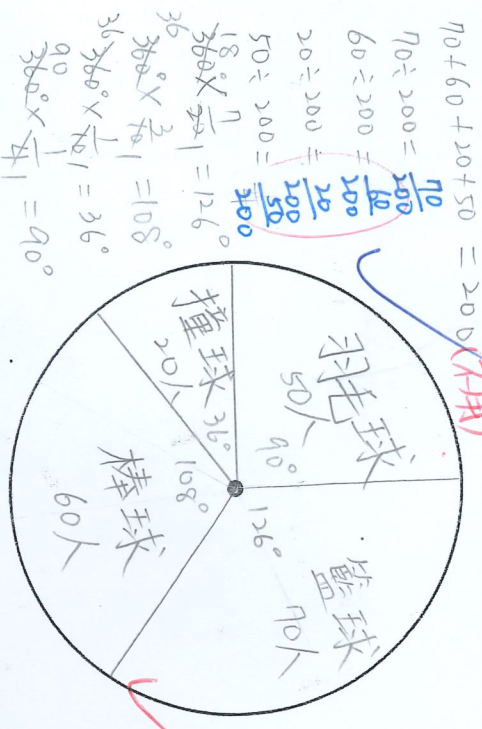 70+60+20+50=200(人)
70÷200= 70/200
60÷200= 60/200
20÷200= 20/200
50÷200= 50/200
360°×7/20=126°
18
360°×3/10=108°
36
360°×1/10=36°
36
360°×1/4=90°
90
羽毛球
50人
90°
籃球
70人
126°
撞球
20人
36°
棒球
60人
108°